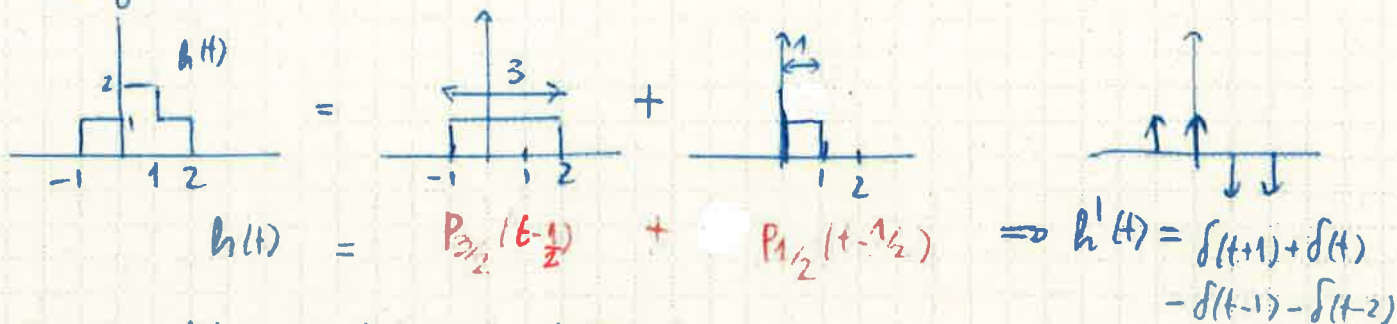 h(t)
2
1
-1 1 2
=
3
-1 1 2
+
1
1 2
h(t) = P_{3/2}(t-\frac{1}{2}) + P_{1/2}(t-1/2) ⇒ h'(t) = δ(t+1)+δ(t)
-δ(t-1)-δ(t-2)